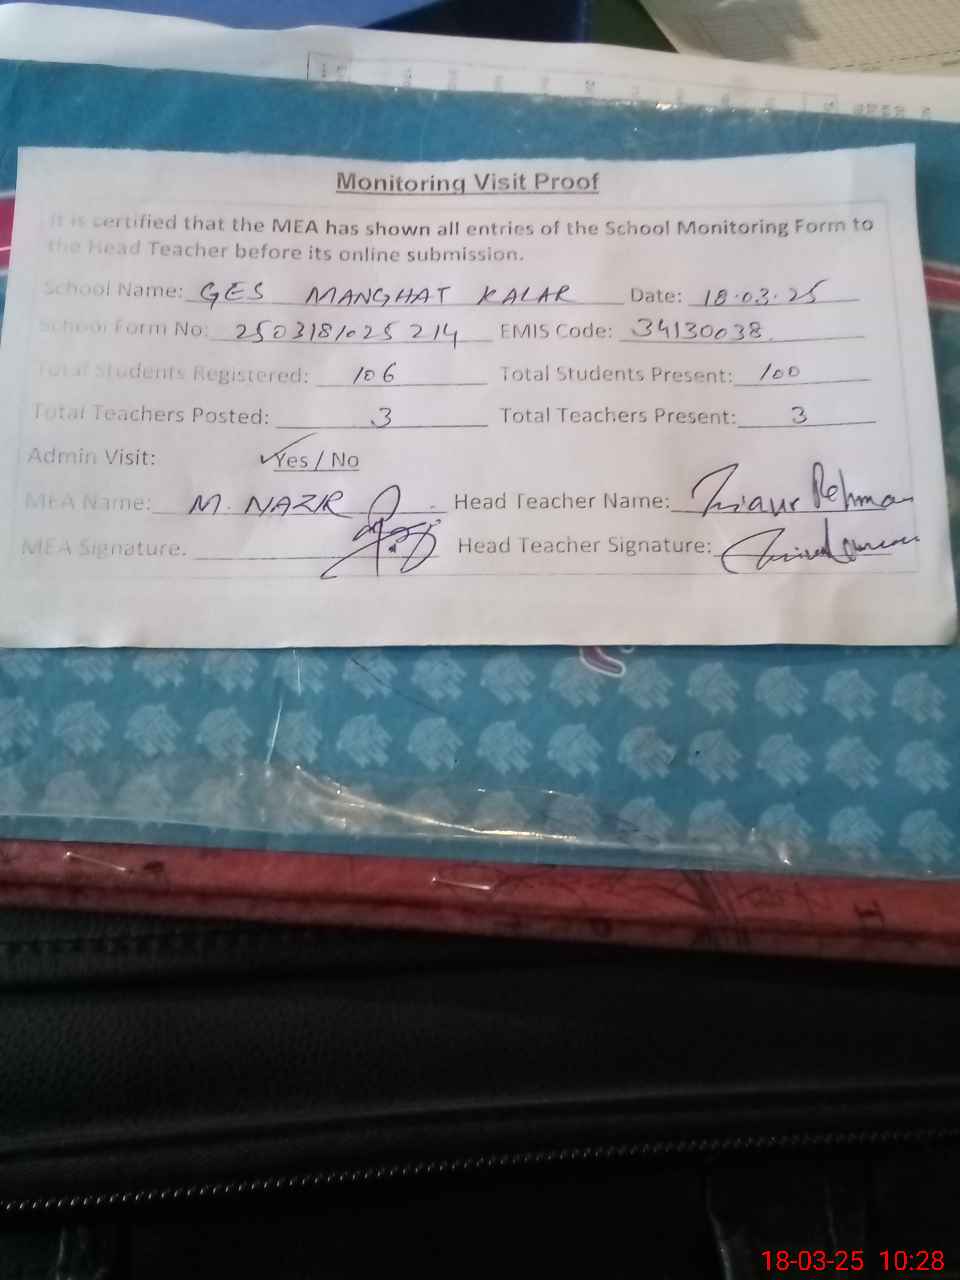 Monitoring Visit Proof
It is certified that the MEA has shown all entries of the School Monitoring Form to
the Head Teacher before its online submission.
School Name: GES MANGHAT KALAR Date: 18.03.25
School Form No: 2503181025214 EMIS Code: 34130038
Total Students Registered: 106 Total Students Present: 100
Total Teachers Posted: 3 Total Teachers Present: 3
Admin Visit: ✓Yes / No
MEA Name: M. NAZIR Head Teacher Name: Rehman
MEA Signature. Head Teacher Signature:
18-03-25 10:28